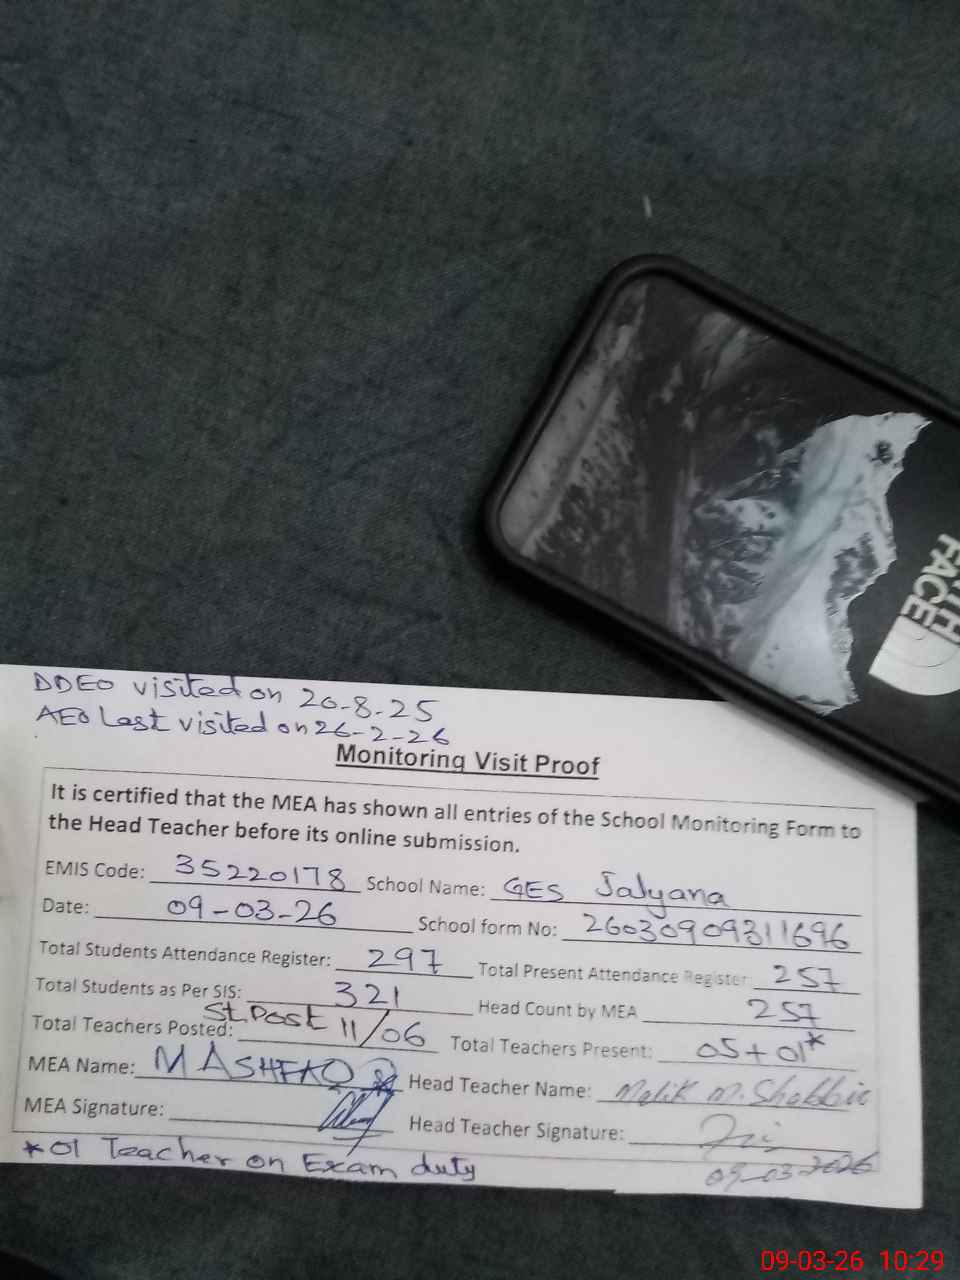 NORTH
FACE
DDEO visited on 20-8-25
AEO Last visited on 26-2-26
Monitoring Visit Proof
It is certified that the MEA has shown all entries of the School Monitoring Form to
the Head Teacher before its online submission.
EMIS Code: 35220178 School Name: GES Jalyana
Date: 09-03-26 School form No: 26030909311696
Total Students Attendance Register: 297 Total Present Attendance Register 257
Total Students as Per SIS: 321 Head Count by MEA 257
Total Teachers Posted: St. Post 11/06 Total Teachers Present: 05+01*
MEA Name: M ASHFAQ Head Teacher Name: Malik M. Shabbir
MEA Signature: Head Teacher Signature:
*01 Teacher on Exam duty 09-03-2026
09-03-26 10:29